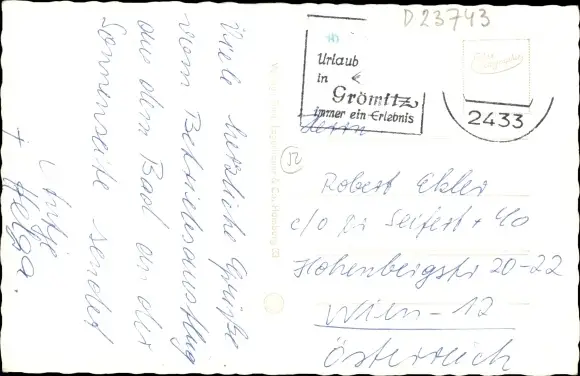 Viele herzliche Grüße
vom Betriebsausflug
aus dem Bad an der
Sonnenseite sendet
Antje
+ Helga.
D 23743
Urlaub
in
Grömitz
immer ein Erlebnis
2433
Herrn
Robert
c/o Seifert + Co
Hohenbergstr 20-22
Wien - 12
Österreich